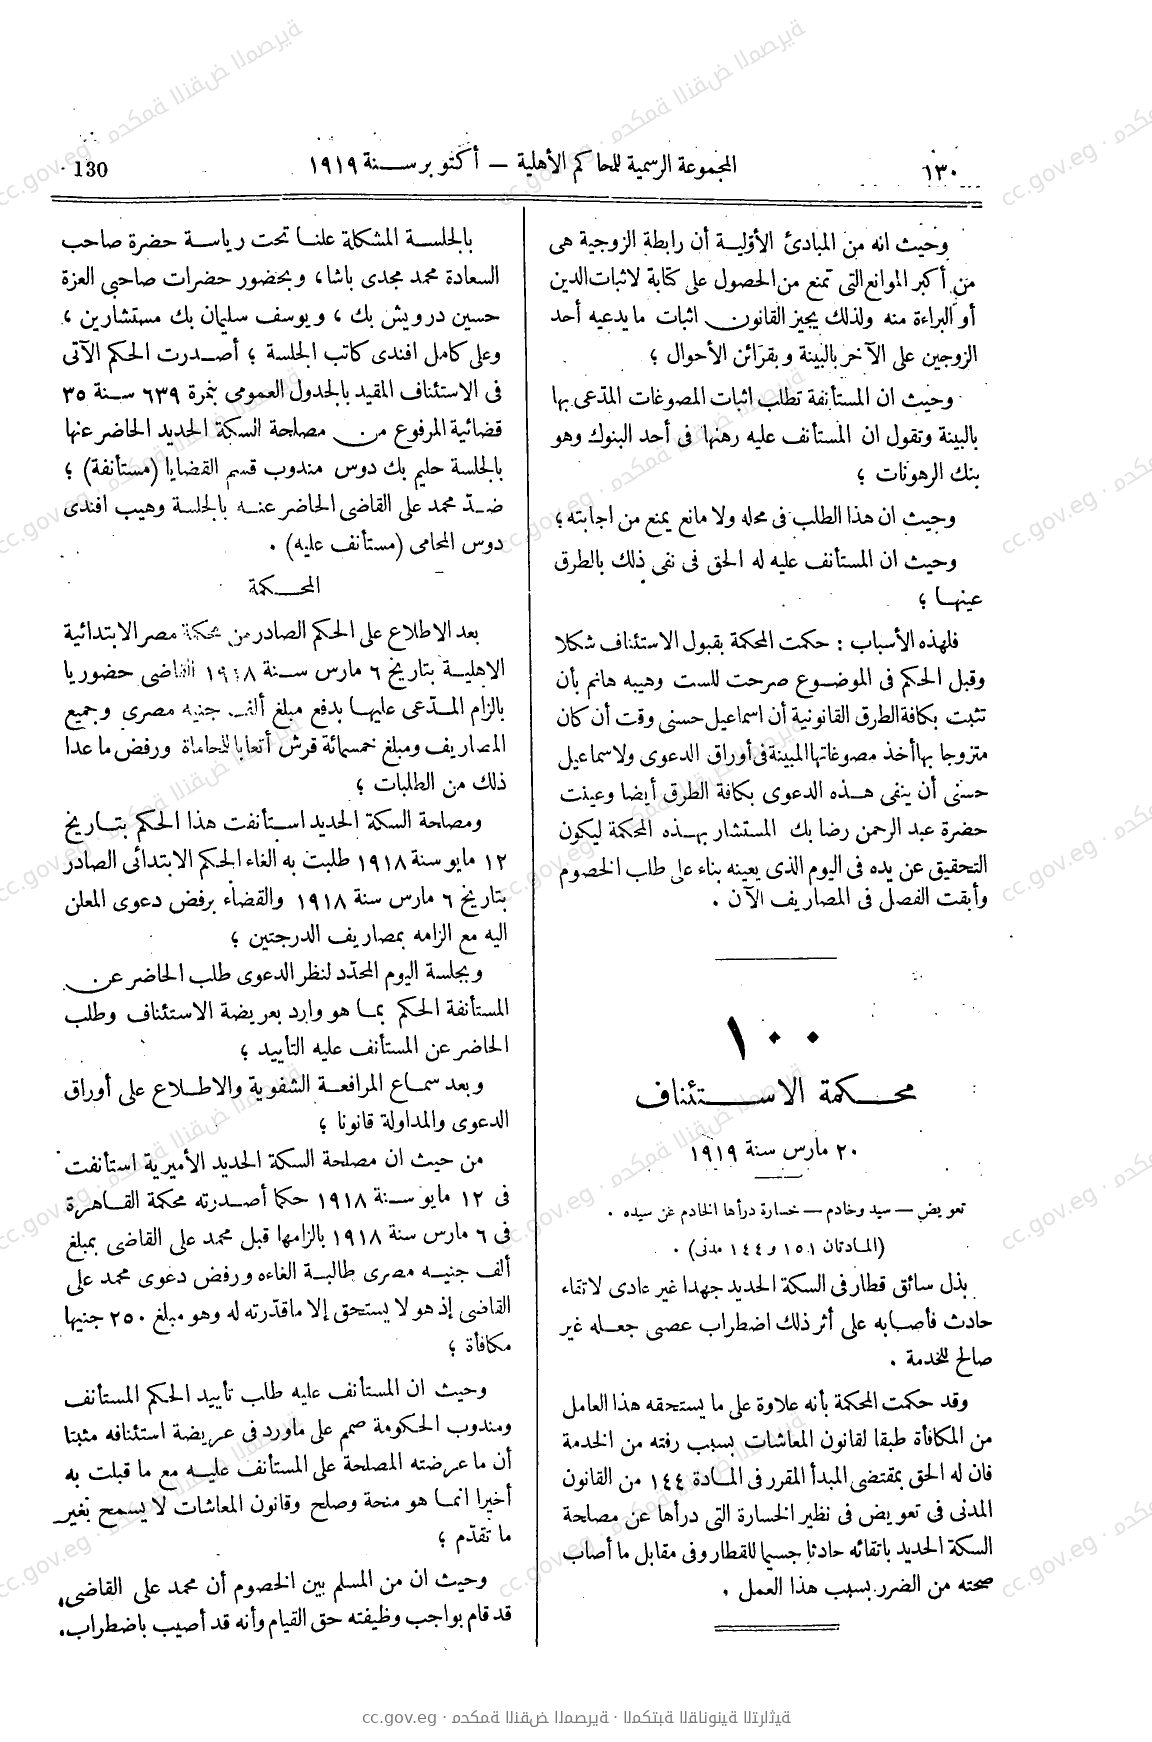 ١٣٠
المجموعة الرسمية للمحاكم الأهلية — أكتوبر سنة ١٩١٩
130
وحيث انه من المبادئ الأوّلية أن رابطة الزوجية هى
من أكبر الموانع التى تمنع من الحصول على كتابة لاثبات الدين
أو البراءة منه ولذلك يجيز القانون اثبات ما يدعيه أحد
الزوجين على الآخر بالبينة وبقرائن الأحوال ؛
وحيث ان المستأنفة تطلب اثبات المصوغات المدّعى بها
بالبينة وتقول ان المستأنف عليه رهنها فى أحد البنوك وهو
بنك الرهونات ؛
وحيث ان هذا الطلب فى محله ولا مانع يمنع من اجابته ؛
وحيث ان المستأنف عليه له الحق فى نفى ذلك بالطرق
عينها ؛
فلهذه الأسباب : حكمت المحكمة بقبول الاستئناف شكلا
وقبل الحكم فى الموضوع صرحت للست وهيبه هانم بأن
تثبت بكافة الطرق القانونية أن اسماعيل حسنى وقت أن كان
متزوجا بها أخذ مصوغاتها المبينة فى أوراق الدعوى ولاسماعيل
حسنى أن ينفى هذه الدعوى بكافة الطرق أيضا وعينت
حضرة عبد الرحمن رضا بك المستشار بهذه المحكمة ليكون
التحقيق عن يده فى اليوم الذى يعينه بناء على طلب الخصوم
وأبقت الفصل فى المصاريف الآن .
١٠٠
محكمة الاستئناف
٢٠ مارس سنة ١٩١٩
تعويض — سيد وخادم — خسارة درأها الخادم عن سيده .
(المادتان ١٥١ و ١٤٤ مدنى) .
بذل سائق قطار فى السكة الحديد جهدا غير عادى لاتقاء
حادث فأصابه على أثر ذلك اضطراب عصبى جعله غير
صالح للخدمة .
وقد حكمت المحكمة بأنه علاوة على ما يستحقه هذا العامل
من المكافأة طبقا لقانون المعاشات بسبب رفته من الخدمة
فان له الحق بمقتضى المبدأ المقرر فى المادة ١٤٤ من القانون
المدنى فى تعويض فى نظير الخسارة التى درأها عن مصلحة
السكة الحديد باتقائه حادثا جسيما للقطار وفى مقابل ما أصاب
صحته من الضرر بسبب هذا العمل .
بالجلسة المشكلة علنا تحت رياسة حضرة صاحب
السعادة محمد مجدى باشا ، وبحضور حضرات صاحبى العزة
حسين درويش بك ، ويوسف سليمان بك مستشارين ،
وعلى كامل افندى كاتب الجلسة ؛ أصدرت الحكم الآتى
فى الاستئناف المقيد بالجدول العمومى بنمرة ٦٣٩ سنة ٣٥
قضائية المرفوع من مصلحة السكة الحديد الحاضر عنها
بالجلسة حليم بك دوس مندوب قسم القضايا (مستأنفة) ؛
ضدّ محمد على القاضى الحاضر عنه بالجلسة وهيب افندى
دوس المحامى (مستأنف عليه) .
المحكمة
بعد الاطلاع على الحكم الصادر من محكمة مصر الابتدائية
الاهلية بتاريخ ٦ مارس سنة ١٩١٨ القاضى حضوريا
بالزام المدّعى عليها بدفع مبلغ ألف جنيه مصرى وجميع
المصاريف ومبلغ خمسمائة قرش أتعابا للمحاماة ورفض ما عدا
ذلك من الطلبات ؛
ومصلحة السكة الحديد استأنفت هذا الحكم بتاريخ
١٢ مايو سنة ١٩١٨ طلبت به الغاء الحكم الابتدائى الصادر
بتاريخ ٦ مارس سنة ١٩١٨ والقضاء برفض دعوى المعلن
اليه مع الزامه بمصاريف الدرجتين ؛
وبجلسة اليوم المحدّد لنظر الدعوى طلب الحاضر عن
المستأنفة الحكم بما هو وارد بعريضة الاستئناف وطلب
الحاضر عن المستأنف عليه التأييد ؛
وبعد سماع المرافعة الشفوية والاطلاع على أوراق
الدعوى والمداولة قانونا ؛
من حيث ان مصلحة السكة الحديد الأميرية استأنفت
فى ١٢ مايو سنة ١٩١٨ حكما أصدرته محكمة القاهرة
فى ٦ مارس سنة ١٩١٨ بالزامها قبل محمد على القاضى بمبلغ
ألف جنيه مصرى طالبة الغاءه ورفض دعوى محمد على
القاضى إذ هو لا يستحق إلا ما قدّرته له وهو مبلغ ٢٥٠ جنيها
مكافأة ؛
وحيث ان المستأنف عليه طلب تأييد الحكم المستأنف
ومندوب الحكومة صمم على ماورد فى عريضة استئنافه مثبتا
أن ما عرضته المصلحة على المستأنف عليه مع ما قبلت به
أخيرا انما هو منحة وصلح وقانون المعاشات لا يسمح بغير
ما تقدّم ؛
وحيث ان من المسلم بين الخصوم أن محمد على القاضى
قد قام بواجب وظيفته حق القيام وأنه قد أصيب باضطراب
cc.gov.eg · محكمة النقض المصرية · المكتبة القانونية التراثية